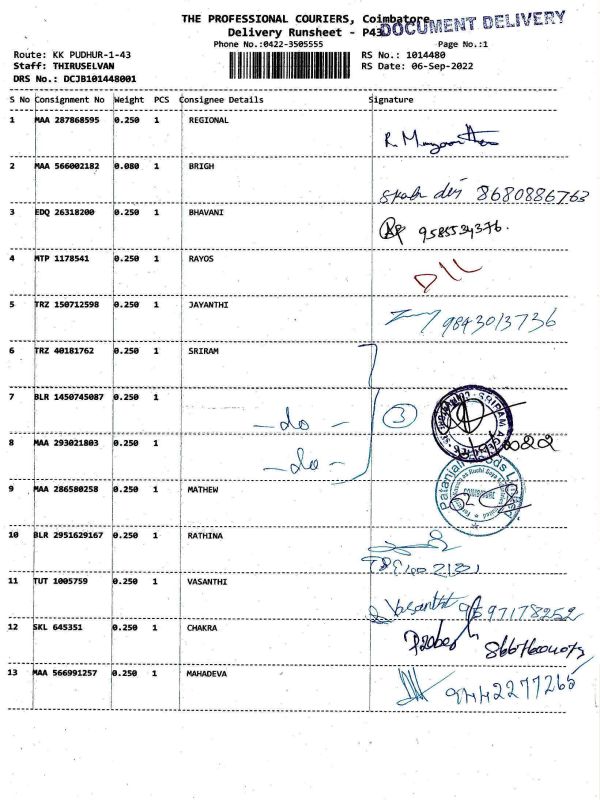 THE PROFESSIONAL COURIERS, Coimbatore
DOCUMENT DELIVERY
Delivery Runsheet - P43
Phone No.:0422-3505555 Page No.:1
Route: KK PUDHUR-1-43 RS No.: 1014480
Staff: THIRUSELVAN RS Date: 06-Sep-2022
DRS No.: DCJB101448001
S No Consignment No Weight PCS Consignee Details Signature
1 MAA 287868595 0.250 1 REGIONAL
2 MAA 566002182 0.080 1 BRIGH 8680886763
3 EDQ 26318200 0.250 1 BHAVANI 9585534376.
4 MTP 1178541 0.250 1 RAYOS
5 TRZ 150712598 0.250 1 JAYANTHI 9843013736
6 TRZ 40181762 0.250 1 SRIRAM
7 BLR 1450745087 0.250 1 - do - 3
8 MAA 293021803 0.250 1 - do -
9 MAA 286580258 0.250 1 MATHEW
10 BLR 2951629167 0.250 1 RATHINA
11 TUT 1005759 0.250 1 VASANTHI Vasanthi 9597178252
12 SKL 645351 0.250 1 CHAKRA
13 MAA 566991257 0.250 1 MAHADEVA 9442277265